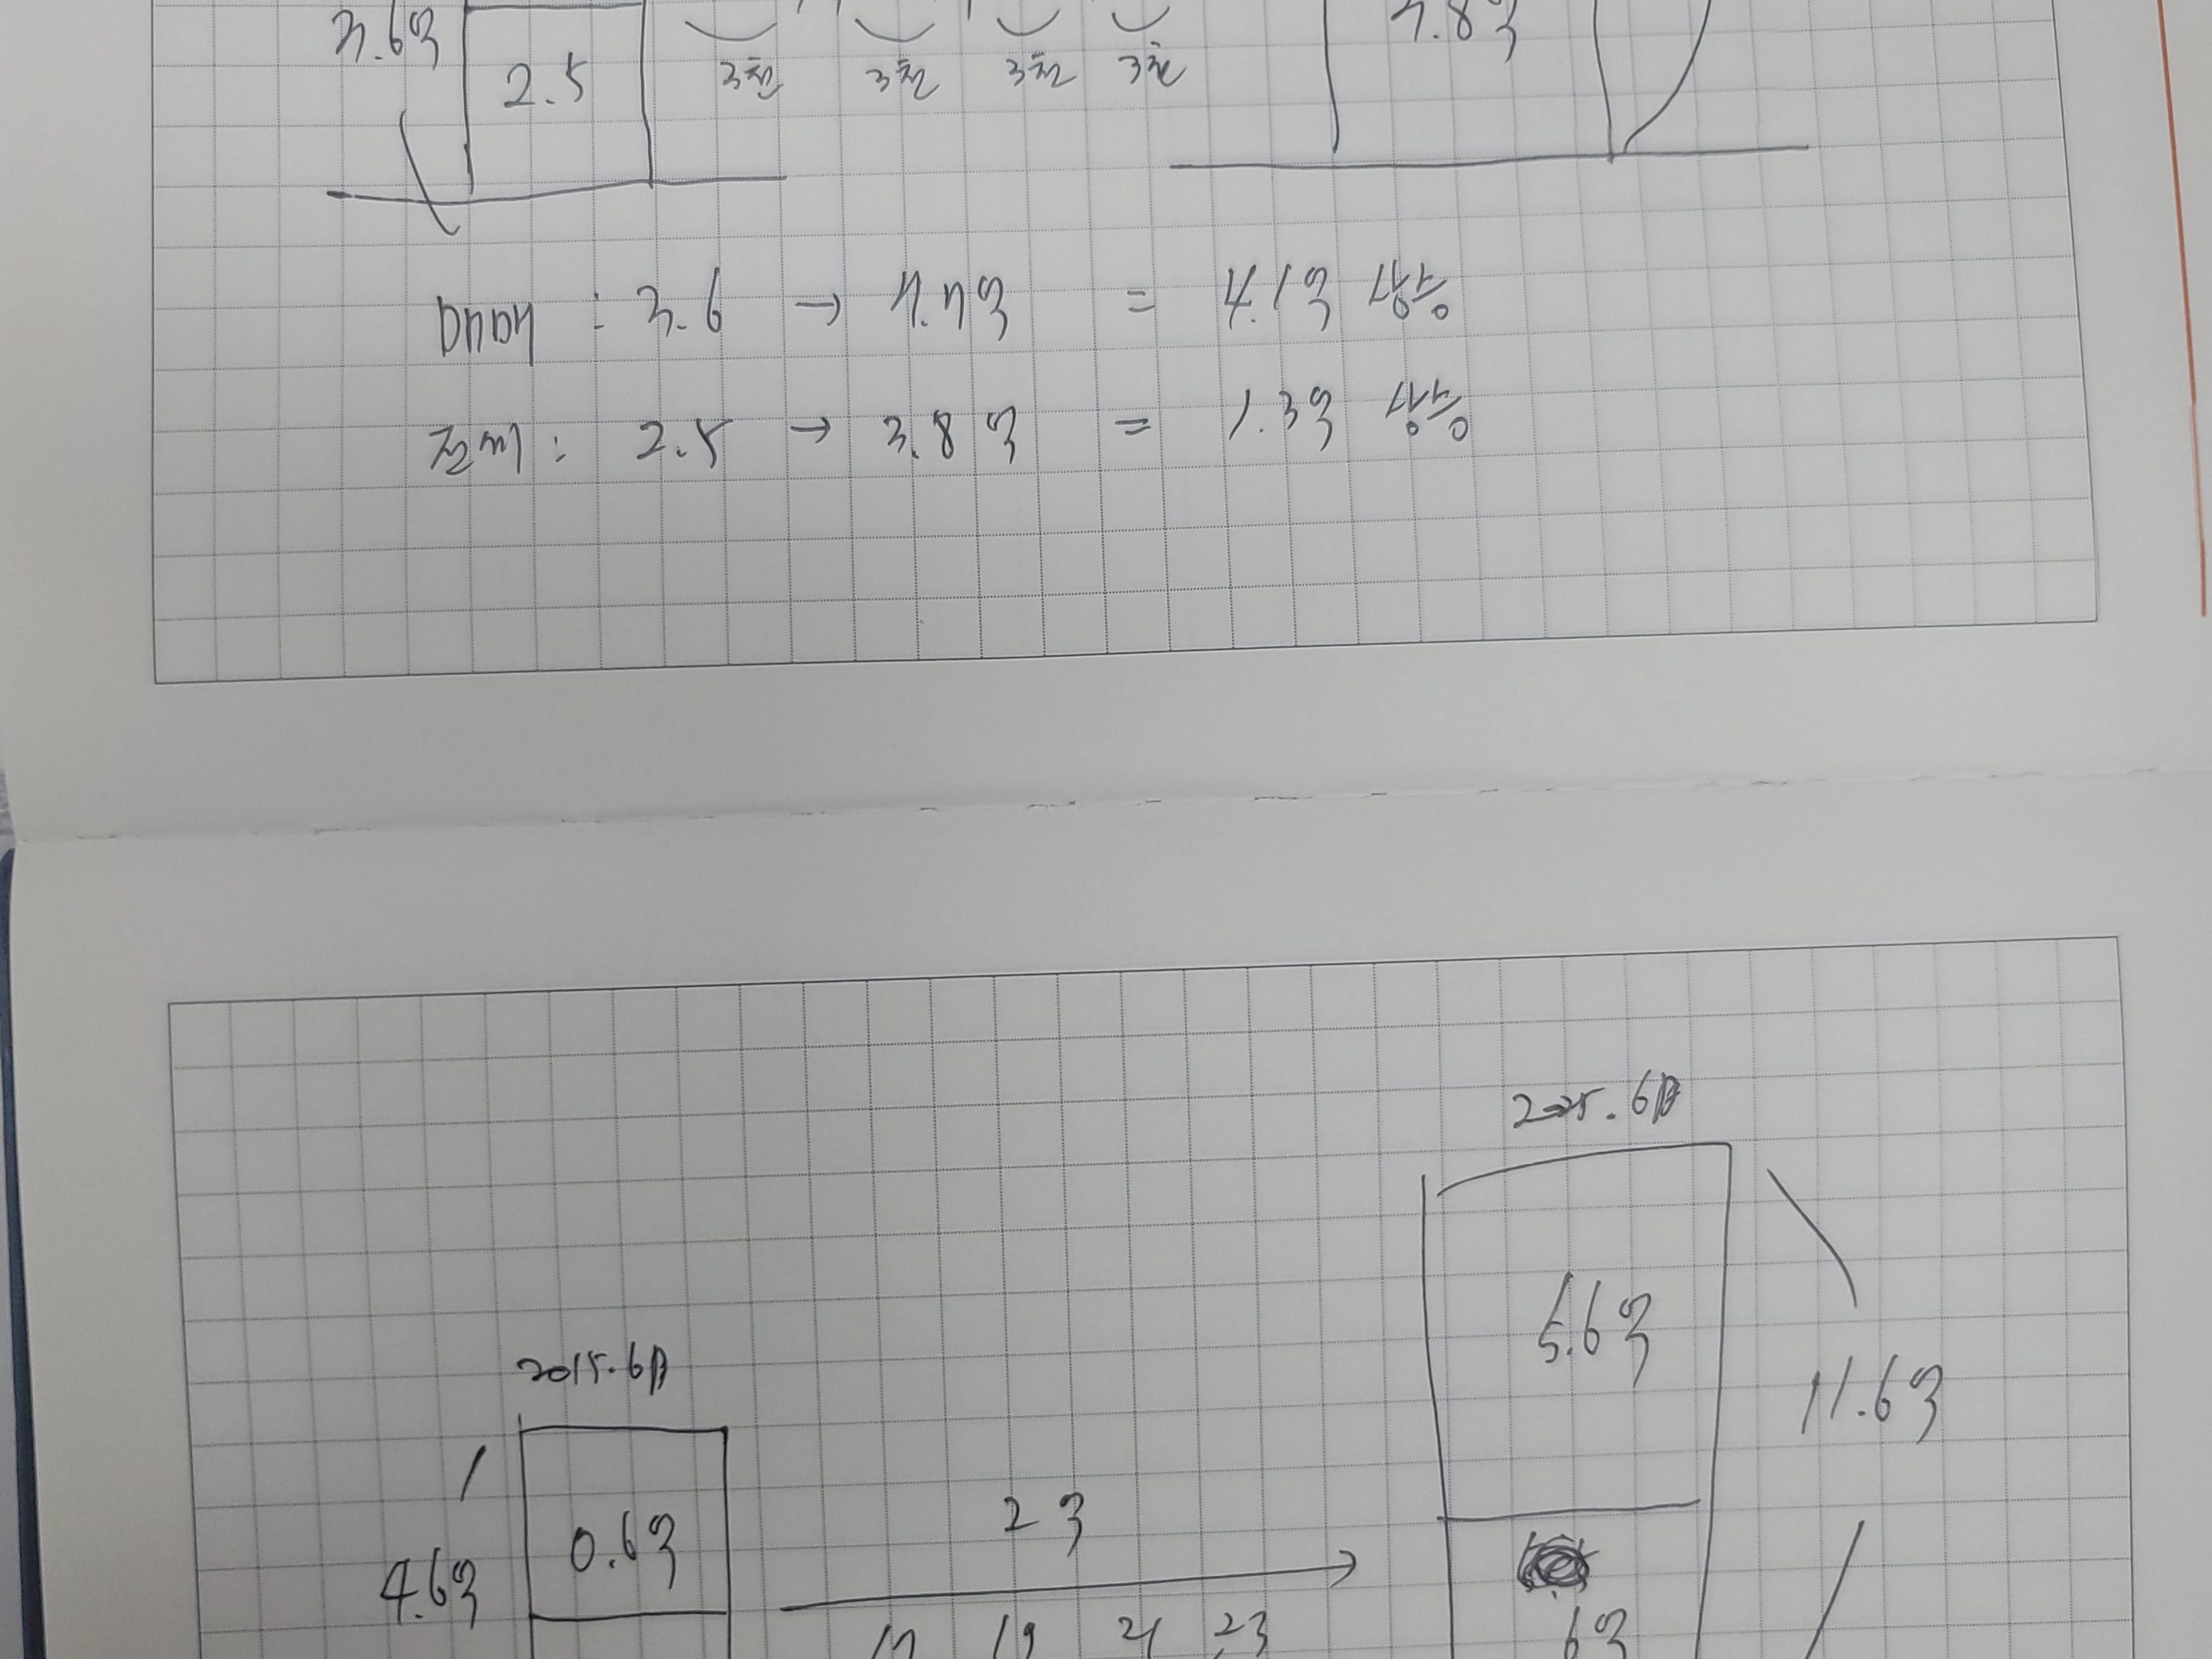 3.6억
2.5
3천 3천 3천 3천
매매 : 3.6 → 7.7억 = 4.1억 상승
전세 : 2.5 → 3.8억 = 1.3억 상승
2025.6月
5.6억
11.6억
2015.6月
0.6억
4.6억
2억
17 19 21 23
6억